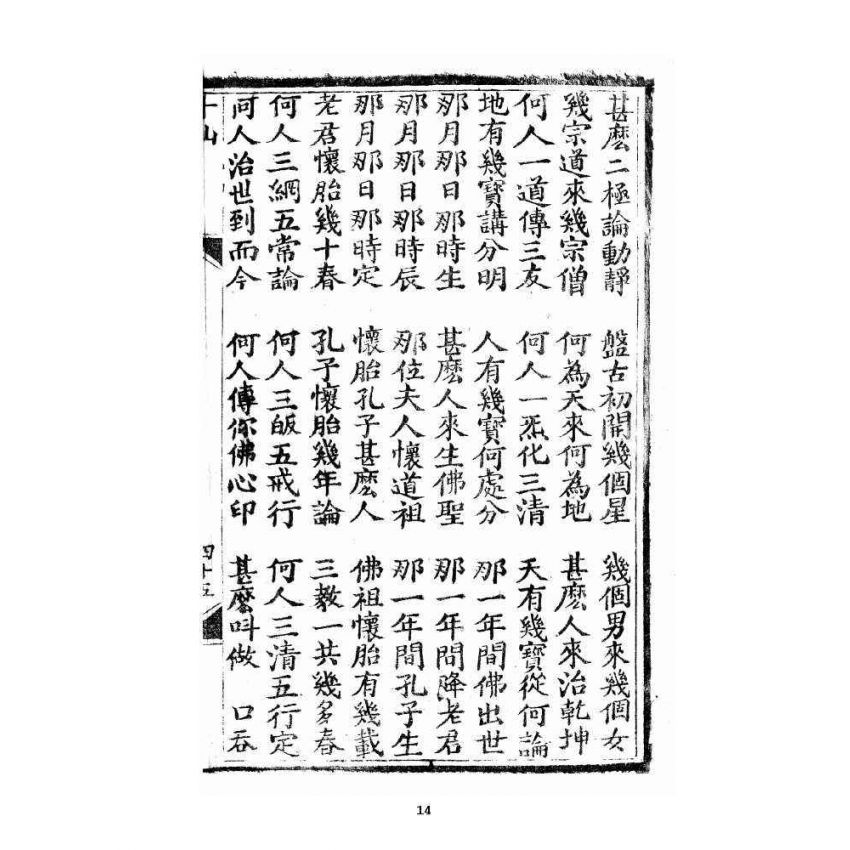 甚麼二極論動靜 盤古初開幾個星 幾個男來幾個女
幾宗道來幾宗僧 何為天來何為地 甚麼人來治乾坤
何人一道傳三友 何人一炁化三清 天有幾寶從何論
地有幾寶講分明 人有幾寶何處分 那一年間佛出世
那月那日那時生 甚麼人來生佛聖 那一年間降老君
那月那日那時辰 那位夫人懷道祖 那一年間孔子生
那月那日那時定 懷胎孔子甚麼人 佛祖懷胎有幾載
老君懷胎幾十春 孔子懷胎幾年論 三教一共幾多春
何人三綱五常論 何人三皈五戒行 何人三清五行定
何人治世到而今 何人傳你佛心印 甚麼叫做 口吞
四十五
14